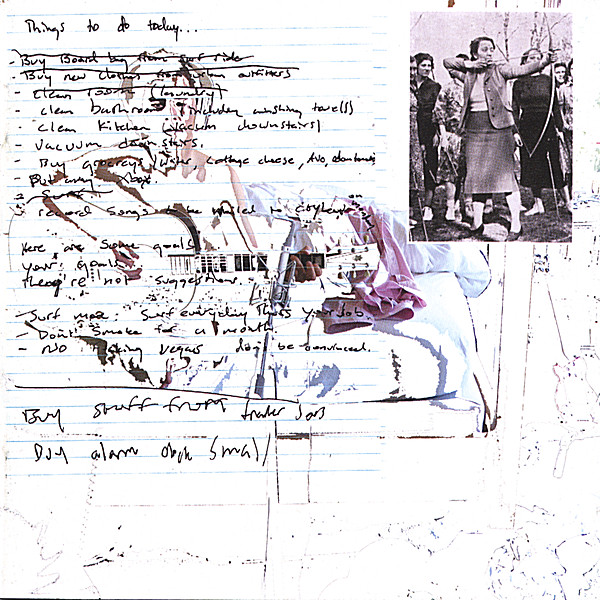 Things to do today...
- Buy Board bag from surf ride
- Buy new clothes from urban outfitters
- clean room (laundry)
- clean bathroom including washing towel(s)
- clean Kitchen (vacuum downstairs)
- Vacuum downstairs.
- Buy grocerys cottage cheese, Avo,
- Put away
- Surf
- record songs to be mailed to on monday
Here are some goals
your goals
they're not suggestions.
- Surf more. Surf everyday it's your job
- Don't smoke for a month
- NO Vegas don't be convinced.
Buy stuff from trader joes
Buy alarm clock small